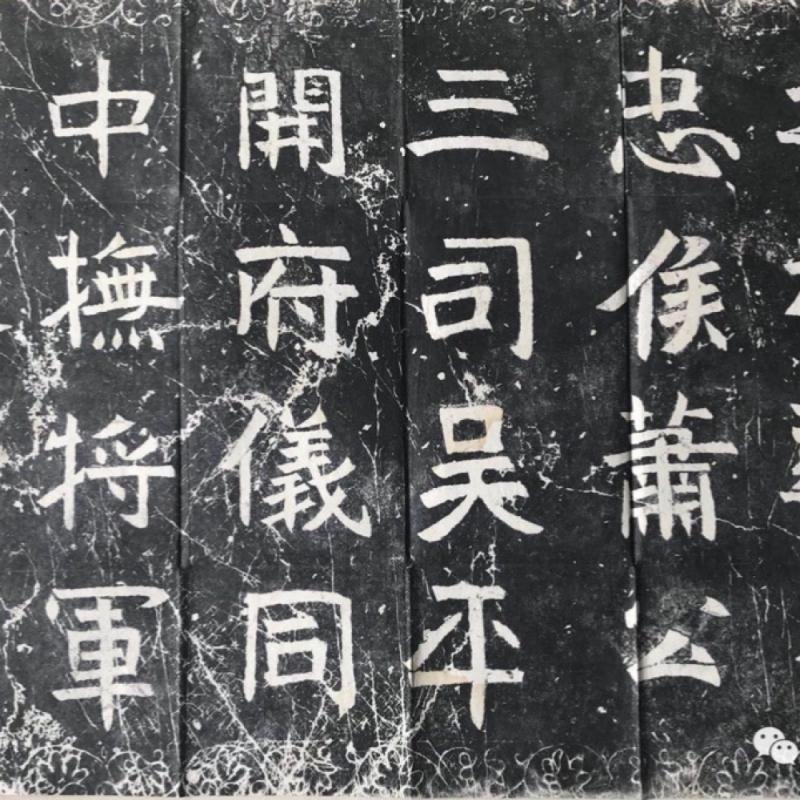 中撫将軍
開府儀同
三司吴平
忠侯蕭公